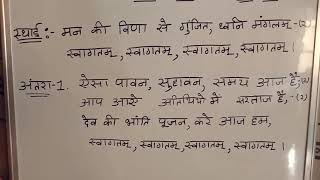 स्थाई:- मन की विणा से गुंजित, ध्वनि मंगलम् -(2)
स्वागतम्, स्वागतम्, स्वागतम्, स्वागतम् ।
अंतरा-1. ऐसा पावन, सुहावन, समय आज है,-(2)
आप आऐ अतिथियो में सरताज है,-(2)
देव की भांति पूजन, करे आज हम,
स्वागतम्, स्वागतम्, स्वागतम्, स्वागतम् ।